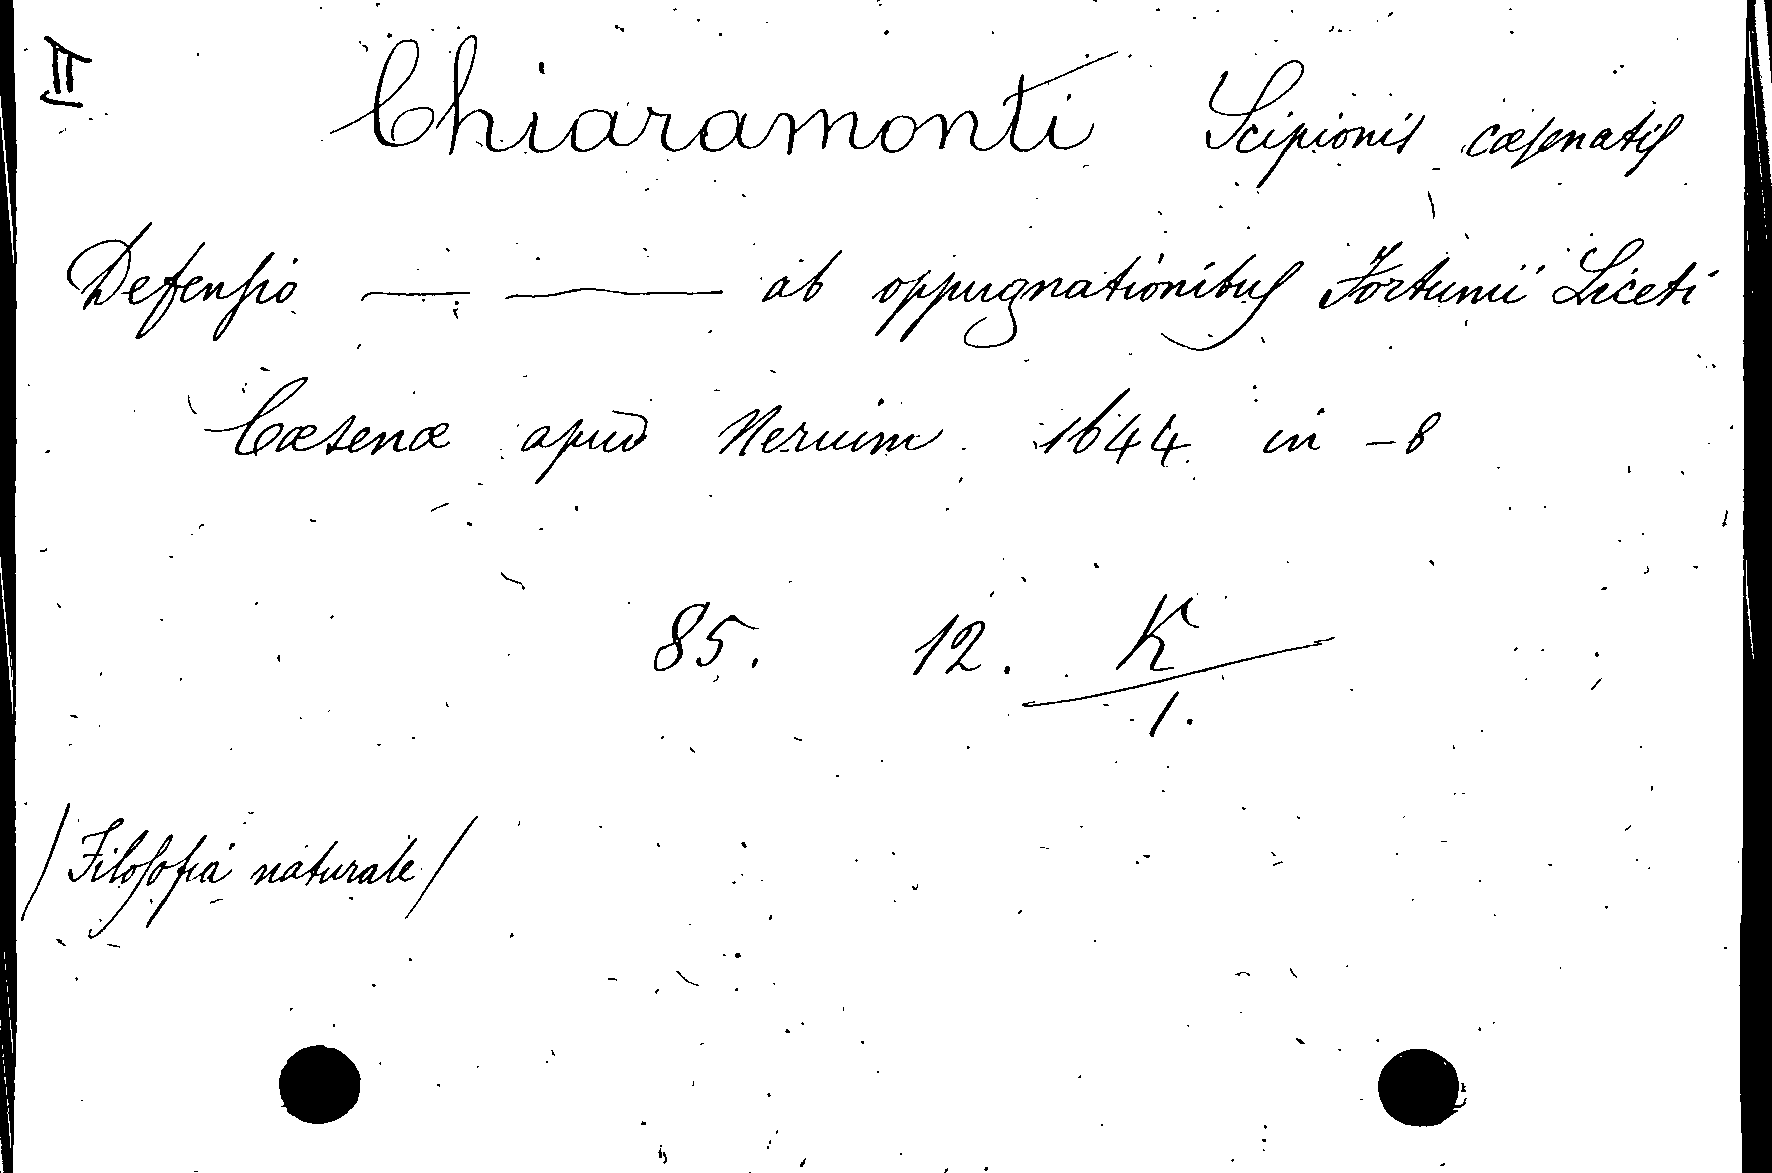 II
Chiaramonti Scipionis cæsenatis
Defensio — — ab oppugnationibus Fortunii Liceti
Cæsenæ apud Neruim 1644 in -8
85. 12. K
1.
/Filosofia naturale/